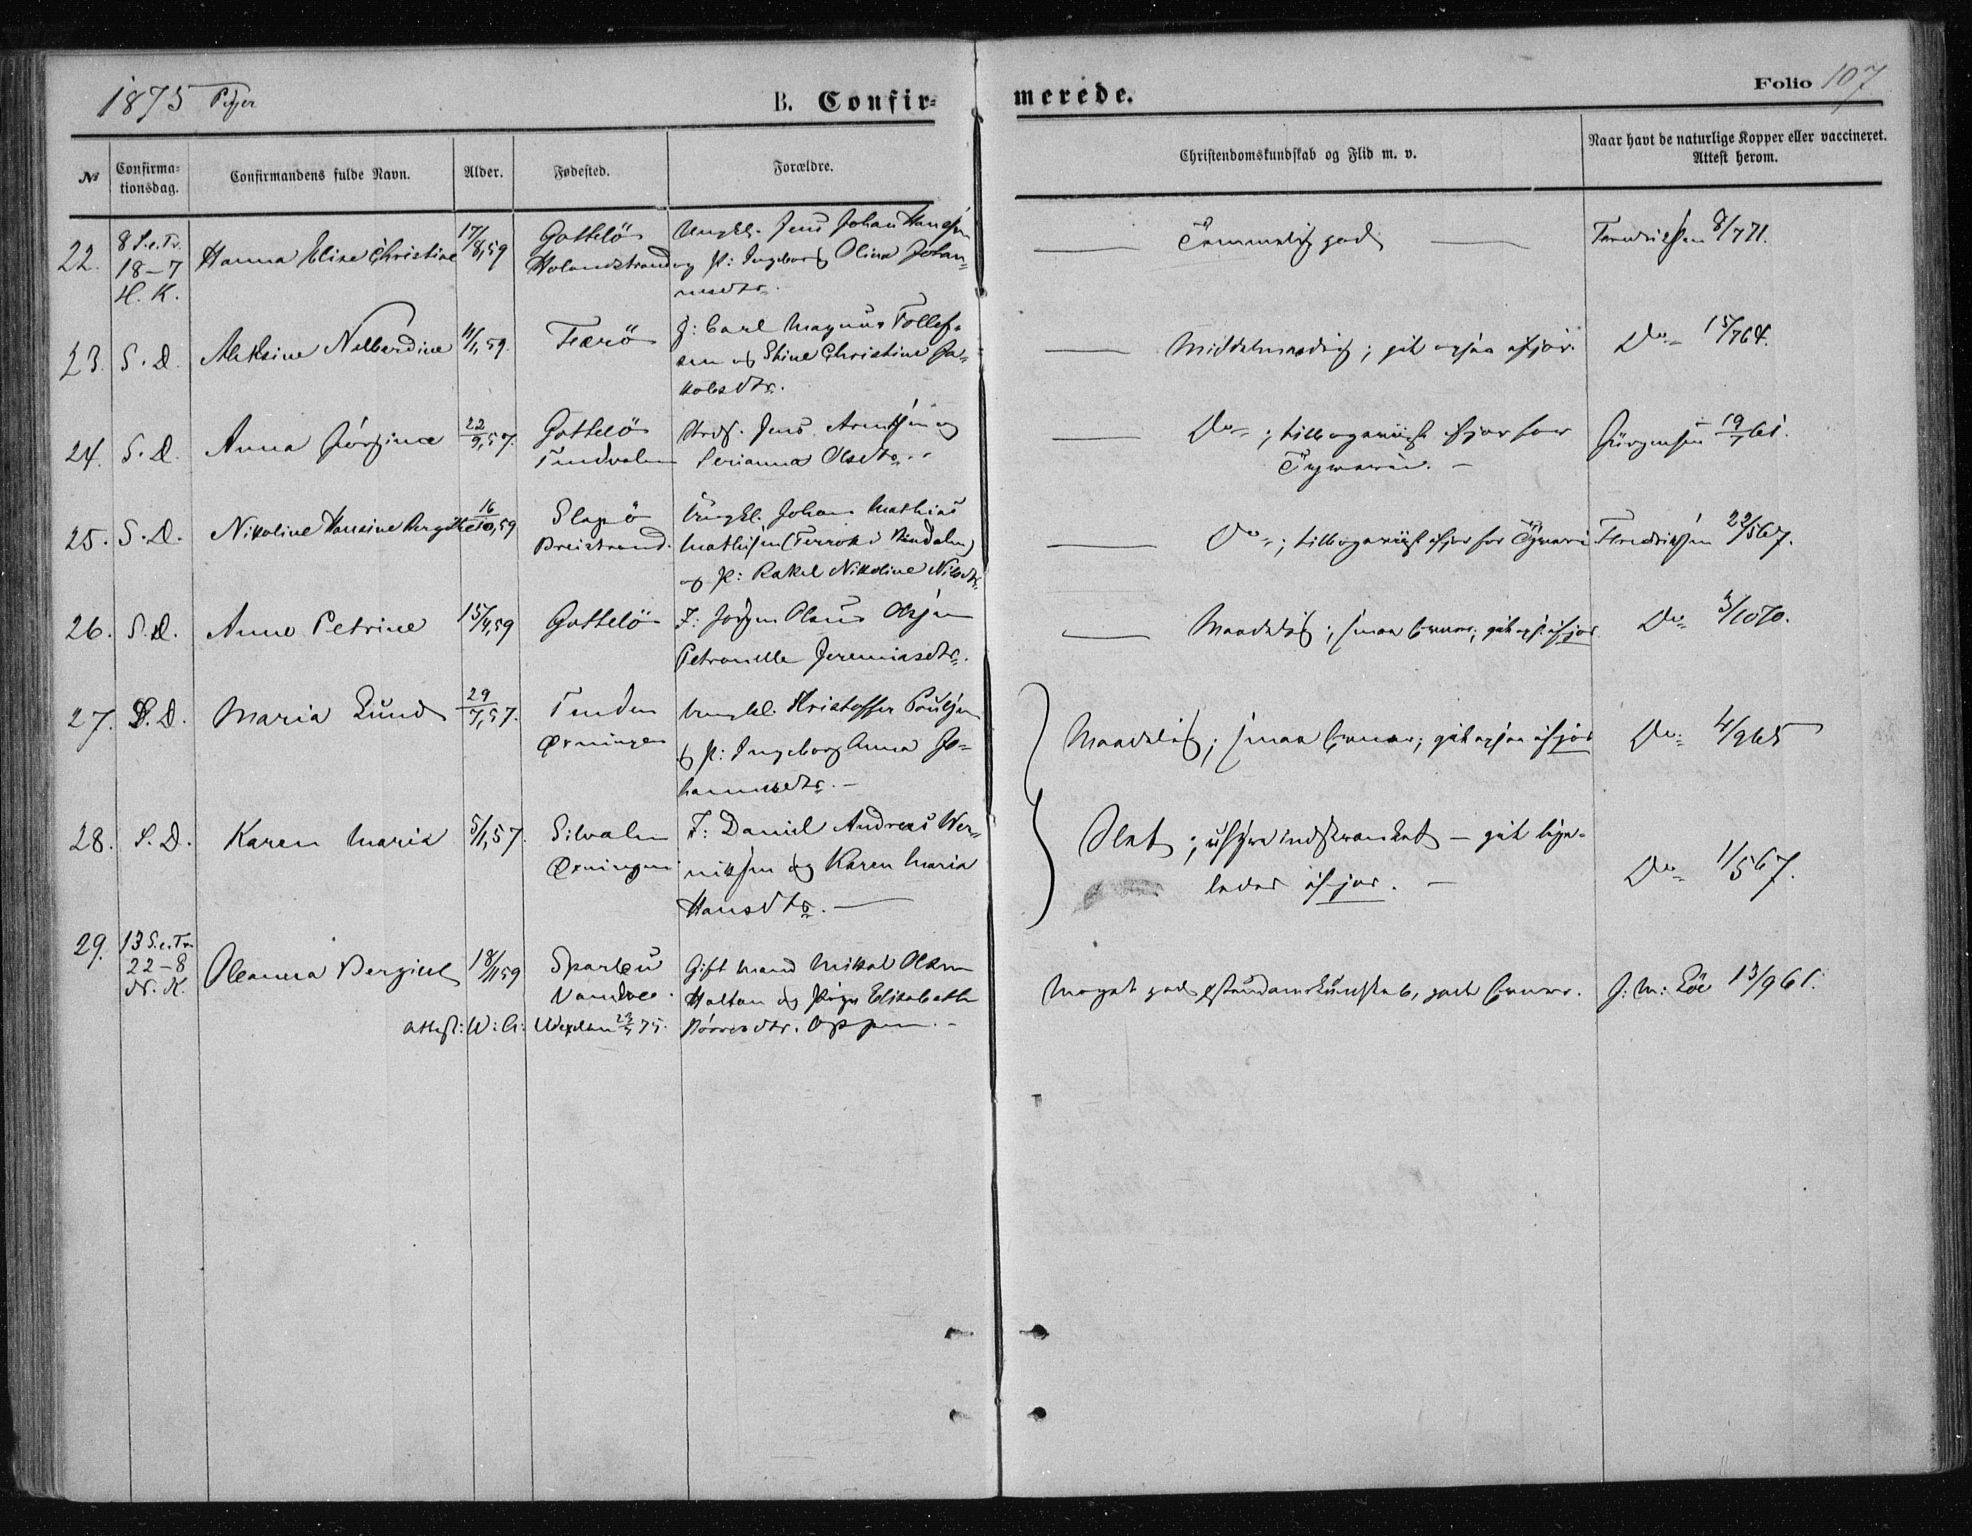 1875 Piger
B. Confir-
merede.
Folio 107
No
Confirma-
tionsdag.
Confirmandens fulde Navn.
Alder.
Fødested.
Forældre.
Christendomskundskab og Flid m. v.
Naar havt de naturlige Kopper eller vaccineret.
Attest herom.
22.
8 S. e. Tr.
18-7
H. K.
Hanna Elise Christine
17/8,59
Gottelö
Holandstrand
Ungkl. Jens Johan Hansen
og p: Ingeborg Olina Johan-
nesdtr.
Temmelig god
8/771.
23.
S. D.
Aleksine Nelberdine
11/1,59.
Færö
F: Carl Magnus Tollef-
sen og Stine Christine Ja-
kobsdtr.
Middelmaadig; gik ogsaa ifjor.
Do 15/764.
24.
S. D.
Anna Jörgine
22/9,57.
Gottelö
Tendvalen
Jens Arntsen og
Perianna Olsdtr.
Do; ifjor for
Jürgensen 19/761.
25.
S. D.
Nikoline Hansine Bergithe
16/10,59
Slapö
Breistrand.
Ungkl. Johan Mathias
Mathisen (Terrok i Bindalen)
og p: Rakel Nikoline Nilsdtr.
Do; ifjor for
Fredriksen 22/567.
26.
S. D.
Anne Petrine
15/4,59
Gottelö
F: Jörgen Olaus Olsen
Petronelle Jeremiasdtr.
Maadelig; smaa Evner; gik ogs. ifjor
Do 3/1070.
27.
S. D.
Maria Lund
29/7,57.
Tenden
Øxningen
Ungkl. Kristoffer Poulsen
og p: Ingeborg Anna Jo-
hannesdtr.
Maadelig; smaa Evner; gik ogsaa ifjor
Do 4/965
28.
S. D.
Karen Maria
5/1,57.
Silvalen
Øxningen
F: Daniel Andreas Wer-
niksen og Karen Maria
Hansdtr.
Slet; uhyre indskrænket - gik lige-
ledes ifjor.
Do 1/567.
29.
13 S. e. Tr.
22-8
N. K.
Oleanna Bergitte
18/1159
Sparbu
Gift Mand Mikal Olsen
Haltan og Pige Elisabeth
Børresdtr. Oppem.
Attest: W: A: Wexelsen 23/7 75.
Meget god Kristendomskundskab, gode Evner.
J: M: Löe 13/961.